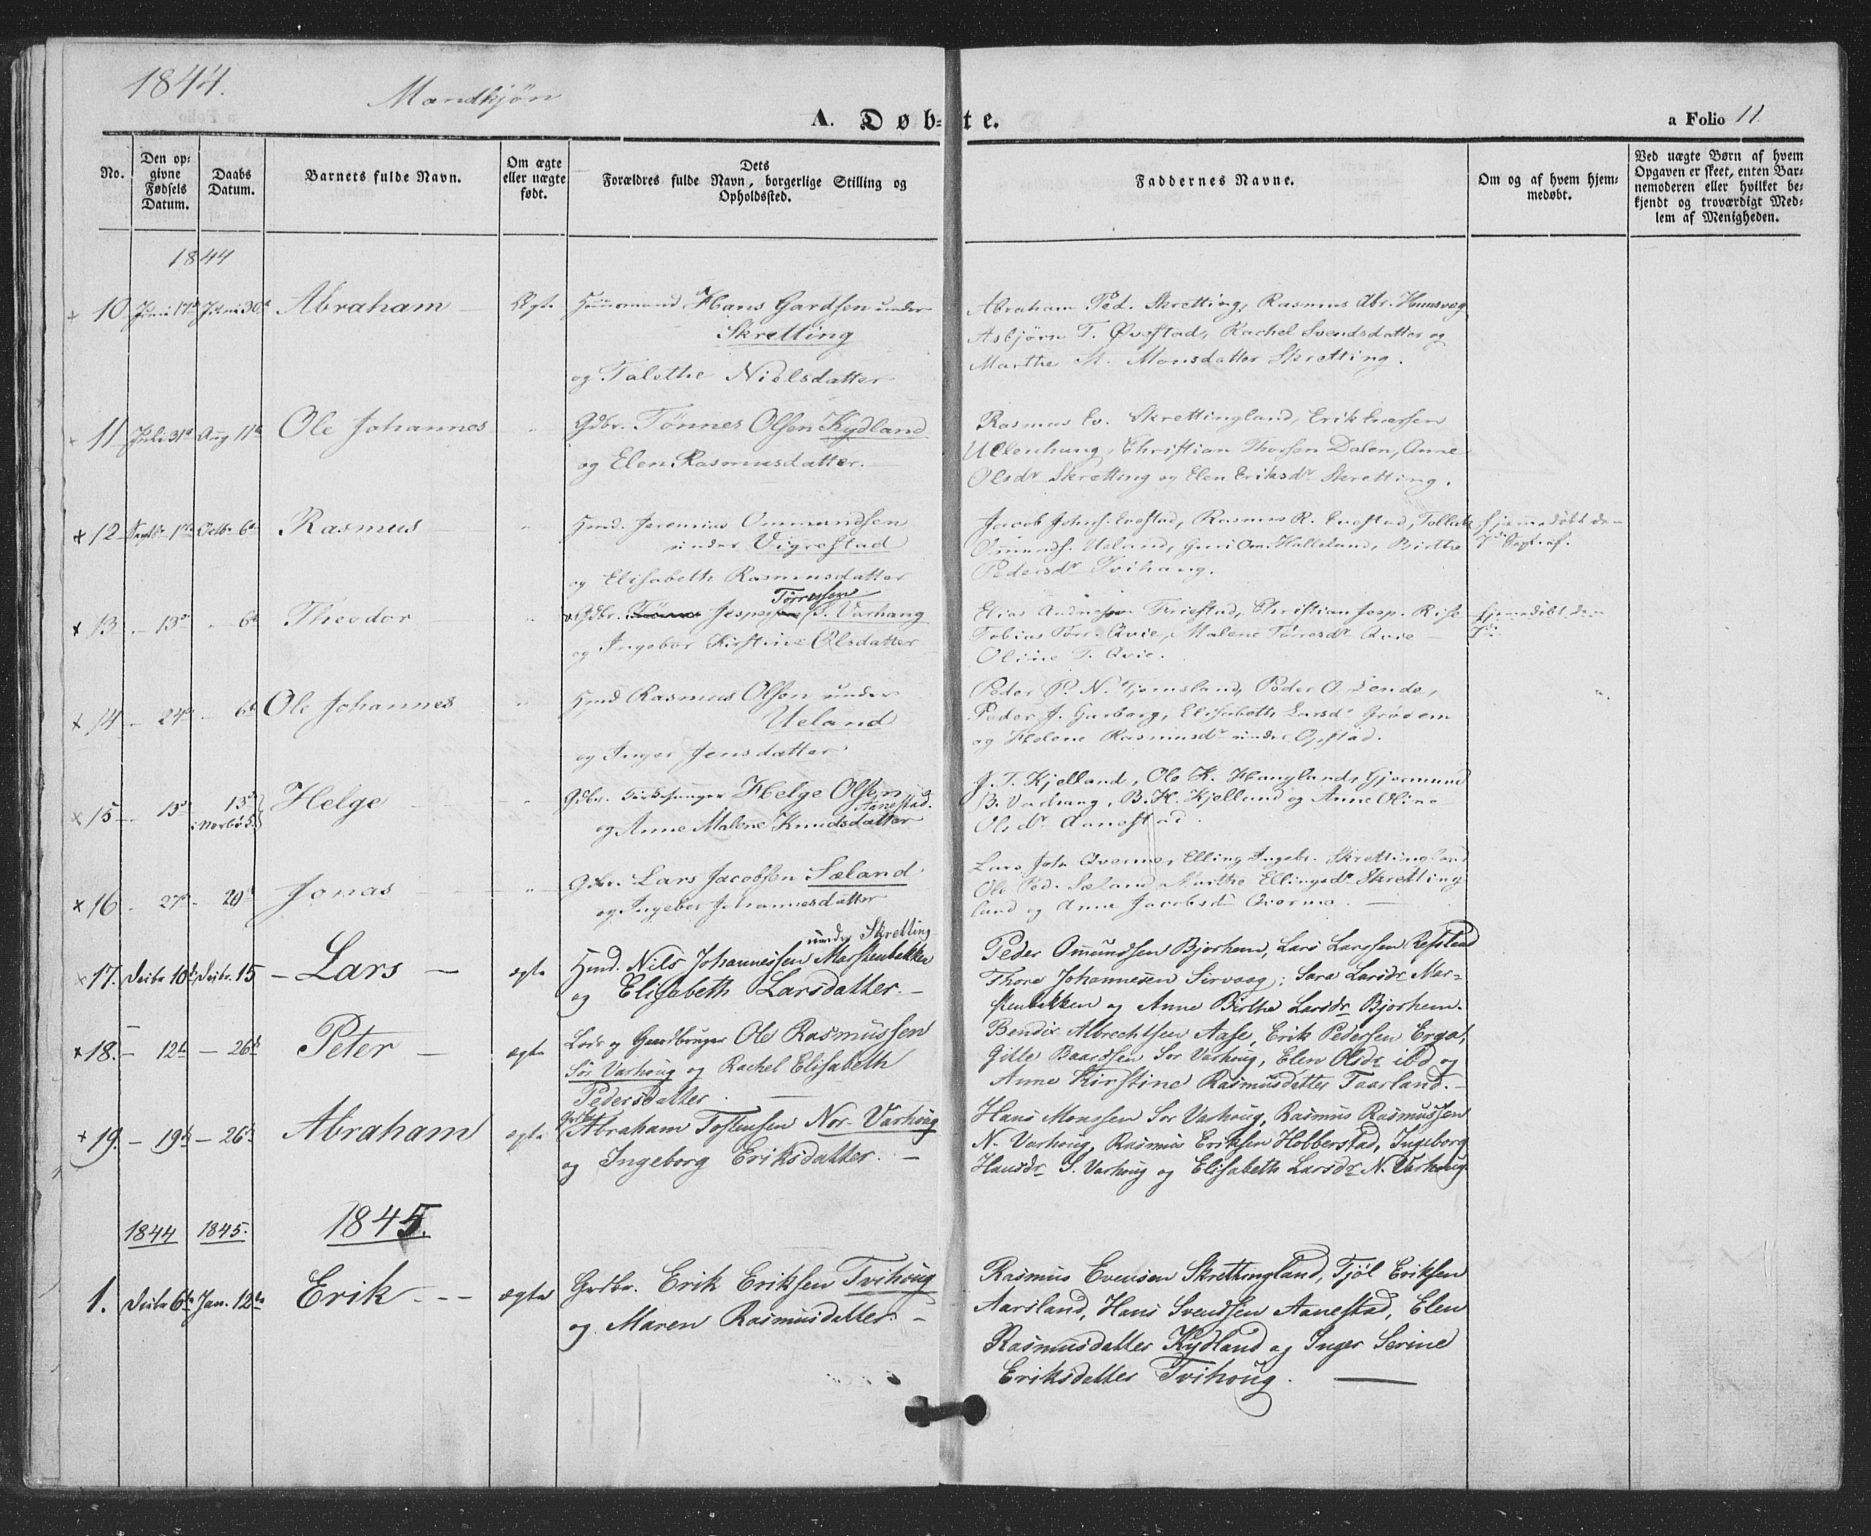 1844.
Mandkjøn
A. Døbte.
a Folio 11
No.
Den op-
givne
Fødsels
Datum.
Daabs
Datum.
Barnets fulde Navn.
Om ægte
eller uægte
født.
Dets
Forældres fulde Navn, borgerlige Stilling og
Opholdssted.
Faddernes Navne.
Om og af hvem hjem-
medøbt.
Ved uægte Børn af hvem
Opgaven er skeet, enten Bar-
nemoderen eller hvilket be-
kjendt og troværdigt Med-
lem af Menigheden.
1844
10 Juni 17de Juni 30te Abraham Ægte Huusmand Hans Gardsen under
Skretting
og Talethe Nielsdatter
Abraham Ped. Skretting, Rasmus Abr. Humsvog
Asbjørn T. Øvestad, Rachel Svendsdatter og
Marthe M. Monsdatter Skretting.
11 Juli 31te Aug 11te Ole Johannes " Gdbr. Tønnes Olsen Kydland
og Elen Rasmusdatter.
Rasmus Ev. Skrettingland, Erik Iversen
Ullenhaug, Christian Thorsen Dalen, Anne
Olsdr Skretting og Elen Eriksdr Skretting.
12 Septbr 1ste Octbr 6te Rasmus " Hmd. Jeremias Ommundsen
under Vigrestad
og Elisabeth Rasmusdatter
Jacob Johns. Evestad, Rasmus R. Evestad, Tollak
Omunds. Ueland, Guri Om. Halleland, Birthe
Pedersdr Tvihaug.
Hjemmedøbt den
Sept. af.
13 - 13de - 6te Theodor Gdbr. Jesper Tørressen S. Varhaug
og Ingebor Kirstine Olsdatter
Elias Andresen Friestad, Christian Jesp. Riise
Tobias Tør. Qvie, Malene Tørresdr Qvie
Oline T. Qvie.
Hjemmedøbt den
14 - 24de - 6te Ole Johannes " Hmd Rasmus Olsen under
Ueland
og Inger Jensdatter
Peder P. N. Tjemsland, Peder O. Lende,
Peder J. Garborg, Elisabeth Larsdr Grødem
og Helene Rasmusdr under Opstad.
15 - 13de 13de Helge " Gdbr. Kirkesanger Helge Olsen
Aanestad.
og Anne Malene Knudsdatter
J. T. Kjelland, Ole K. Haugland, Gjermund
B. Varhaug, B. H. Kjelland og Anne Oline
Olsdr Aanestad.
16 - 27de - 20de Jonas " Gdbr. Lars Jacobsen Sæland
og Ingebor Johannesdatter
Lars Joh. Qverme, Elling Ingebr. Skrettingland
Ole Ped. Sæland, Marthe Ellingsdr Skretting-
land og Anne Jacobsdr Qverme.
under Skretting
17. Decbr 10de Decbr. 15 - Lars - ægte Hmd. Nils Johannessen Marstenbekken
og Elisabeth Larsdatter. -
Peder Omundsen Bjorhem, Lars Larssen Refsland
Thore Johannesen Sirvaag; Sara Larsdr Mar-
stenbekken og Anne Birthe Larsdr Bjorhem.
18. - 12te - 26de Peter - ægte Lods og Gaardbruger Ole Rasmussen
Sør Varhoug og Rachel Elisabeth
Pedersdatter.
Bendix Albrechtsen Aase, Erik Pedersen Erga,
Gitle Baardsen Sør Varhoug, Elen Olsdr ibd og
Anne Kirstine Rasmusdatter Taarland.
19. - 19de - 26de Abraham ægte Gdbr. Abraham Tostensen Nor. Varhoug
og Ingeborg Eriksdatter. -
Hans Monssen Sør Varhoug, Rasmus Rasmussen
N. Varhoug, Rasmus Eriksen Hobberstad, Ingeborg
Hansdr S. Varhoug og Elisabeth Larsdr N. Varhoug
1844 1845. 1845.
1. Decbr 6te Jan. 12te Erik - - - ægte Grdbr. Erik Eriksen Tvihoug
og Maren Rasmusdatter. -
Rasmus Evensen Skrettingland, Tjøl Eriksen
Aarsland, Hans Svendsen Aanestad, Elen
Rasmusdatter Kydland og Inger Serine
Eriksdatter Tvihoug.